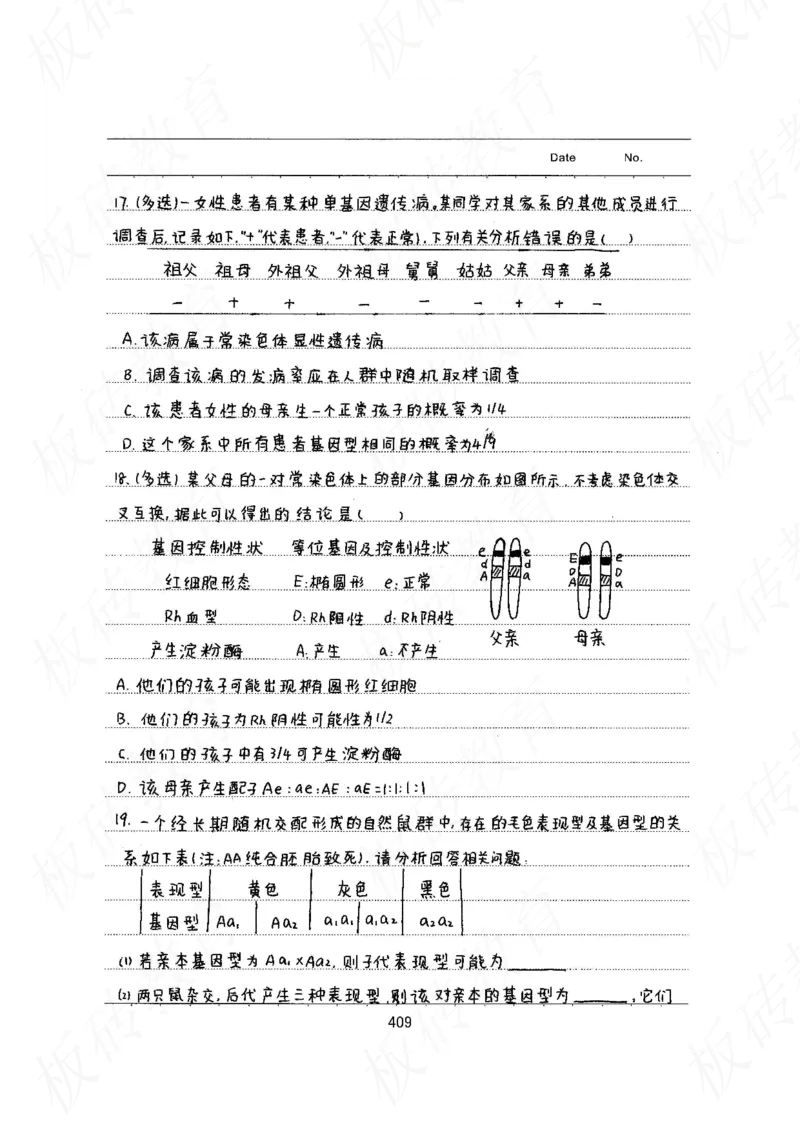 Date No.
17.(多选)一女性患者有某种单基因遗传病。某同学对其家系的其他成员进行
调查后,记录如下,"+"代表患者,"-"代表正常),下列有关分析错误的是( )
祖父 祖母 外祖父 外祖母 舅舅 姑姑 父亲 母亲 弟弟
- + + - - - + + -
A.该病属于常染色体显性遗传病
B.调查该病的发病率应在人群中随机取样调查
C.该患者女性的母亲生一个正常孩子的概率为1/4
D.这个家系中所有患者基因型相同的概率为4/9
18.(多选)某父母的一对常染色体上的部分基因分布如图所示,不考虑染色体交
叉互换,据此可以得出的结论是( )
基因控制性状 等位基因及控制性状
红细胞形态 E:椭圆形 e:正常
Rh血型 D:Rh阳性 d:Rh阴性
产生淀粉酶 A:产生 a:不产生
e e
d d
A a
父亲
E e
D D
A a
母亲
A.他们的孩子可能出现椭圆形红细胞
B.他们的孩子为Rh阴性可能性为1/2
C.他们的孩子中有3/4可产生淀粉酶
D.该母亲产生配子Ae:ae:AE:aE=1:1:1:1
19.一个经长期随机交配形成的自然鼠群中,存在的毛色表现型及基因型的关
系如下表(注:AA纯合胚胎致死),请分析回答相关问题:
表现型 黄色 灰色 黑色
基因型 Aa₁ Aa₂ a₁a₁ a₁a₂ a₂a₂
(1)若亲本基因型为Aa₁×Aa₂,则子代表现型可能为______
(2)两只鼠杂交,后代产生三种表现型,则该对亲本的基因型为______,它们
409
板砖教育